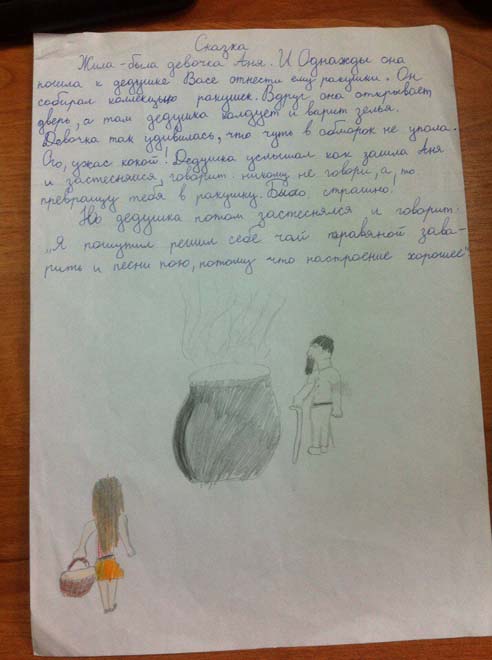 Сказка
Жила-была девочка Аня. И Однажды она
пошла к дедушке Васе отнести ему ракушки. Он
собирал коллекцию ракушек. Вдруг она открывает
дверь, а там дедушка колдует и варит зелья.
Девочка так удивилась, что чуть в обморок не упола.
Ого, ужас кокой! Дедушка услышал как зашла Аня
и застеснялся, говорит никому не говори, а, то
превращу тебя в ракушку. Было страшно.
Но дедушка потом застеснялся и говорит:
„Я пошутил решил себе чай травяной зава-
рить и песни пою, потому что настроение хорошее"